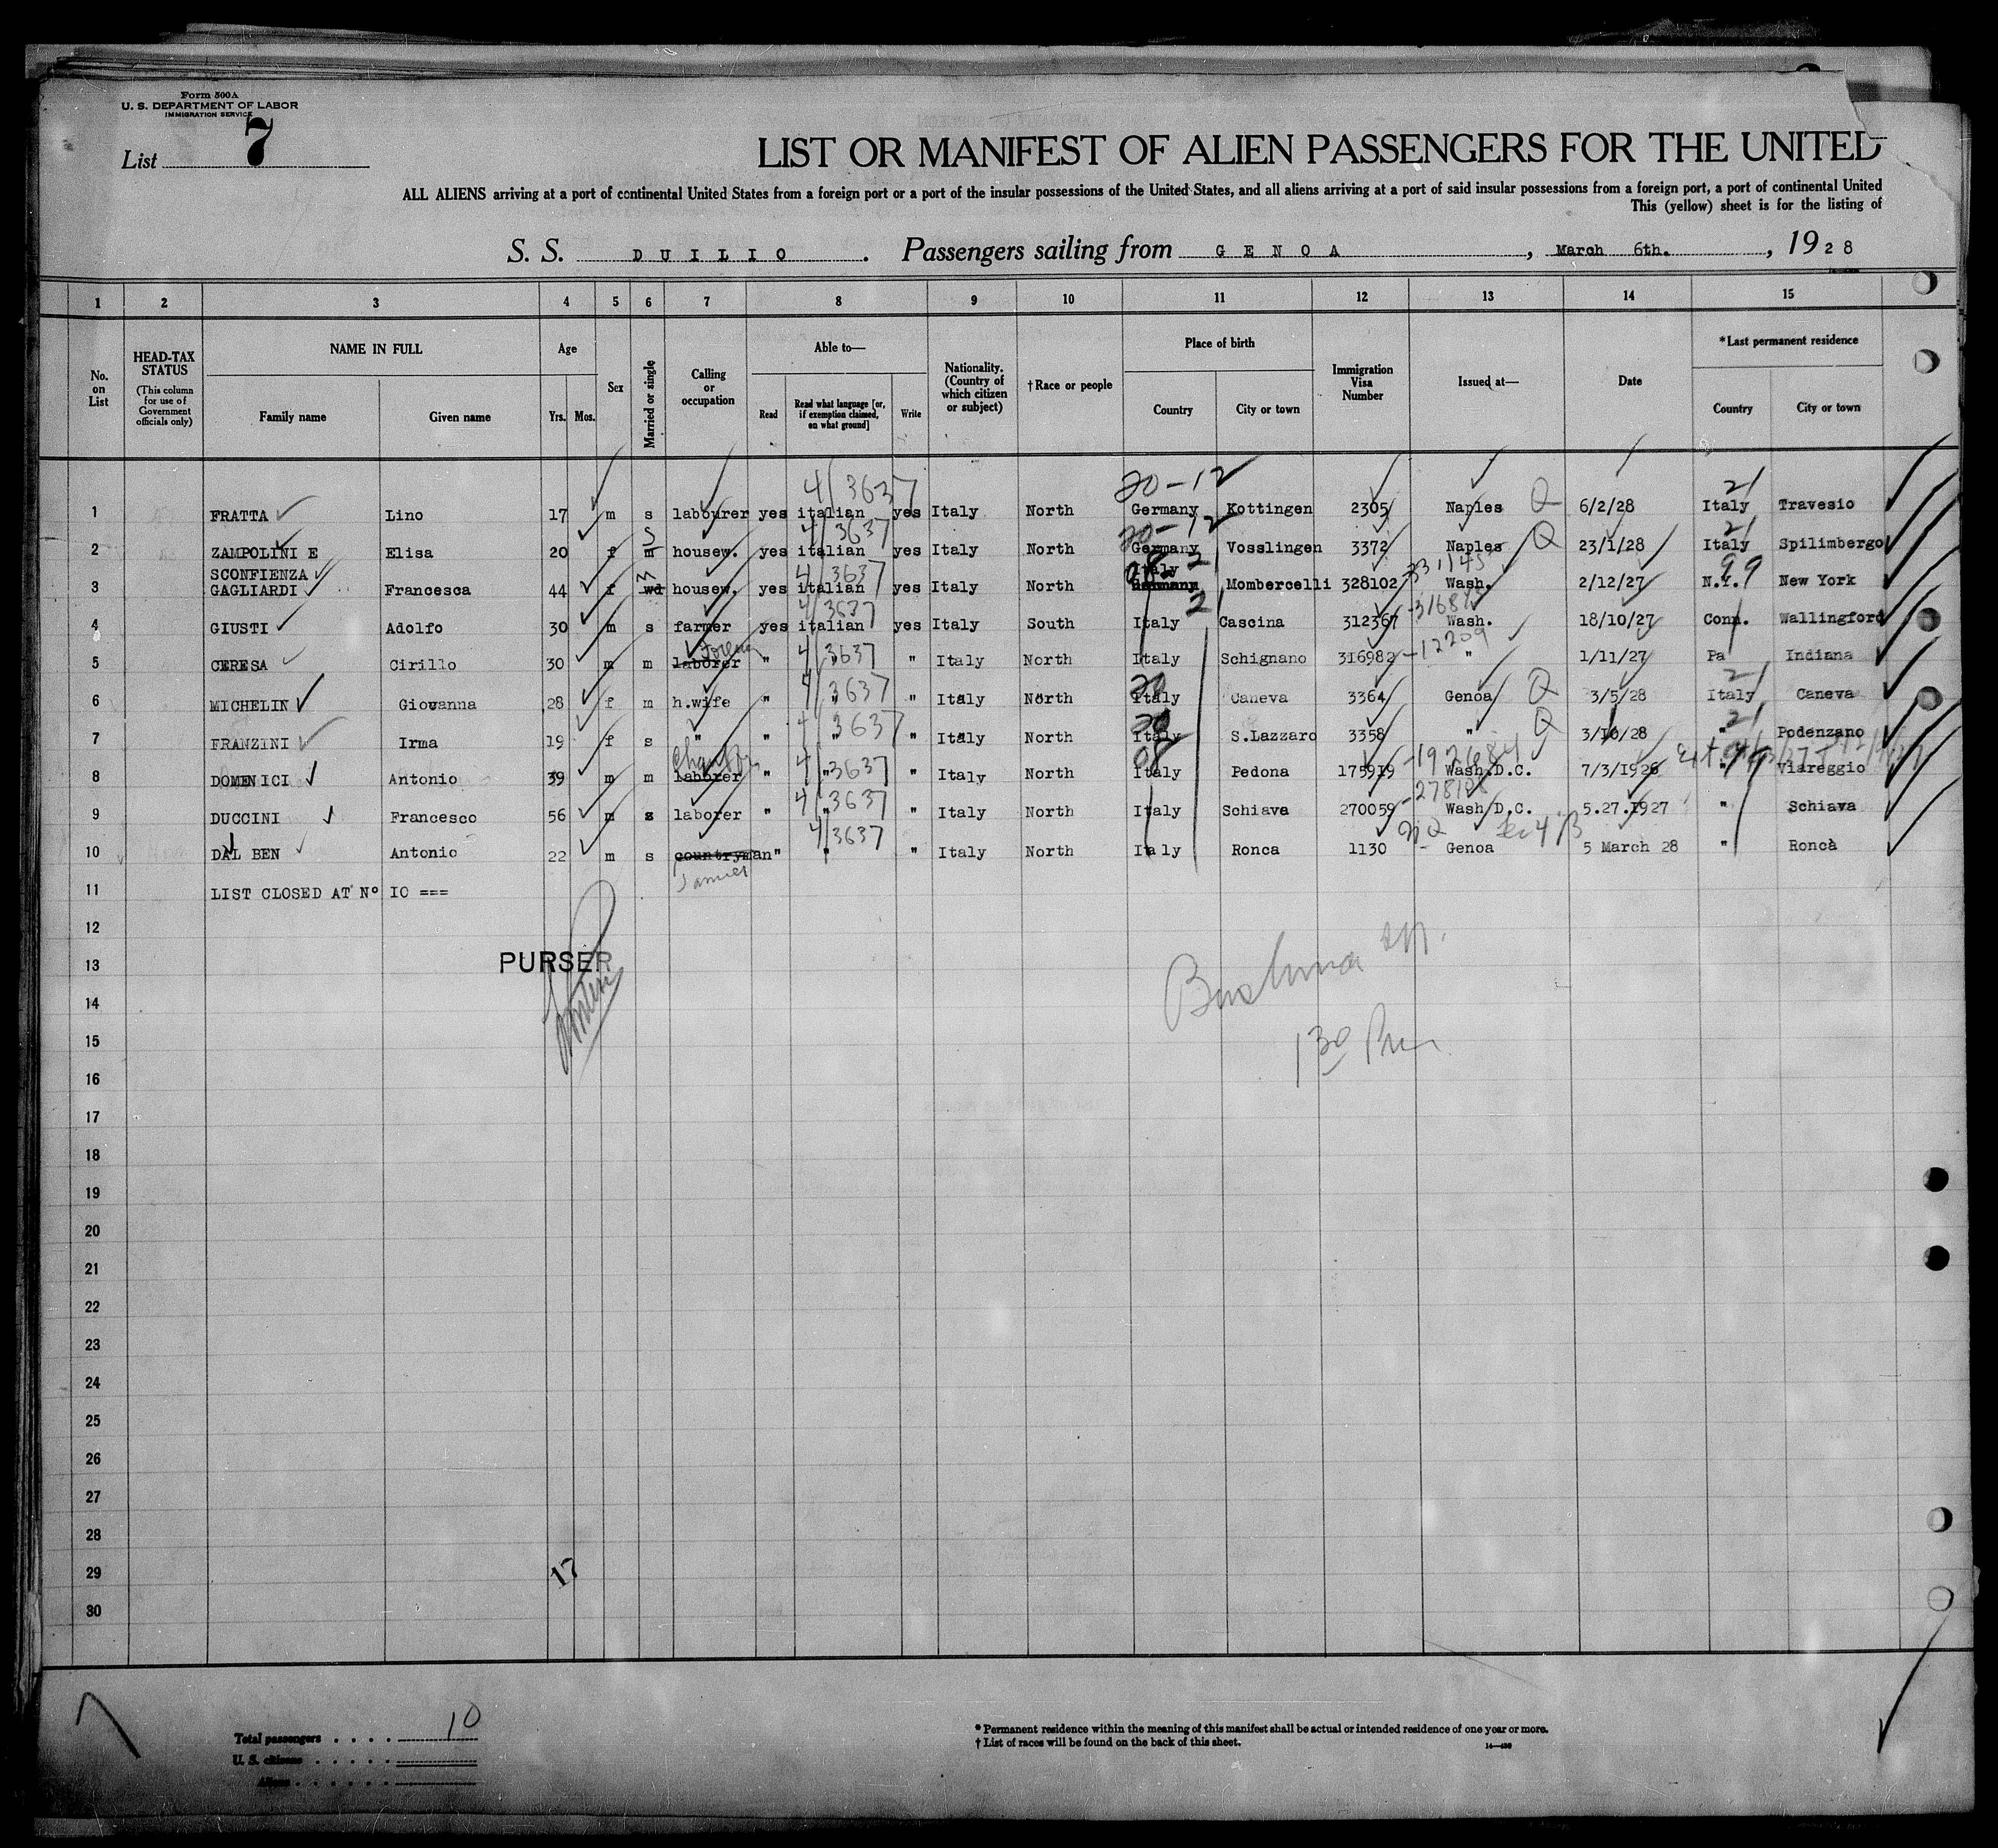 Form 500A
U. S. DEPARTMENT OF LABOR
IMMIGRATION SERVICE
List 7
LIST OR MANIFEST OF ALIEN PASSENGERS FOR THE UNITED
ALL ALIENS arriving at a port of continental United States from a foreign port or a port of the insular possessions of the United States, and all aliens arriving at a port of said insular possessions from a foreign port, a port of continental United
This (yellow) sheet is for the listing of
S. S. DUILIO. Passengers sailing from GENOA, March 6th., 1928
1 2 3 4 5 6 7 8 9 10 11 12 13 14 15
No. on List
HEAD-TAX STATUS (This column for use of Government officials only)
NAME IN FULL
Family name
Given name
Age
Yrs. Mos.
Sex
Married or single
Calling or occupation
Able to—
Read
Read what language [or, if exemption claimed, on what ground]
Write
Nationality. (Country of which citizen or subject)
†Race or people
Place of birth
Country
City or town
Immigration Visa Number
Issued at—
Date
*Last permanent residence
Country
City or town
20-12
4/3637
21
1 FRATTA Lino 17 m s labourer yes italian yes Italy North Germany Kottingen 2305 Naples Q 6/2/28 Italy Travesio
S 4/3637 20-12 21
2 ZAMPOLINI E Elisa 20 f m housew. yes italian yes Italy North Germany Vosslingen 3372 Naples Q 23/1/28 Italy Spilimbergo
SCONFIENZA m 4/3637 Italy 08 2 331145 99
3 GAGLIARDI Francesca 44 f wd housew. yes italian yes Italy North Germany Mombercelli 328102 Wash. 2/12/27 N.Y. New York
4/3637 2
4 GIUSTI Adolfo 30 m s farmer yes italian yes Italy South Italy Cascina 312367 Wash. 18/10/27 Conn. Wallingford
4/3637 -12209
5 CERESA Cirillo 30 m m laborer " " " Italy North Italy Schignano 316982 " 1/11/27 Pa Indiana
4/3637 20 21
6 MICHELIN Giovanna 28 f m h.wife " " " Italy North Italy Caneva 3364 Genoa Q 3/5/28 Italy Caneva
4/3637 20 21
7 FRANZINI Irma 19 f s " " " " Italy North Italy S.Lazzaro 3358 " Q 3/10/28 " Podenzano
4/3637 08
8 DOMENICI Antonio 39 m m laborer " " " Italy North Italy Pedona 175919 Wash.D.C. 7/3/1926 " Viareggio
4/3637 -278108
9 DUCCINI Francesco 56 m s laborer " " " Italy North Italy Schiava 270059 Wash D.C. 5.27.1927 " Schiava
4/3637
10 DAL BEN Antonio 22 m s countryman " " " Italy North Italy Ronca 1130 Genoa 5 March 28 " Roncà
11 LIST CLOSED AT N° 10 ===
12
13 PURSER
14
15
130
16
17
18
19
20
21
22
23
24
25
26
27
28
29 17
30
Total passengers . . . . 10
U. S. citizens . . . . .
Aliens . . . . . .
* Permanent residence within the meaning of this manifest shall be actual or intended residence of one year or more.
† List of races will be found on the back of this sheet.